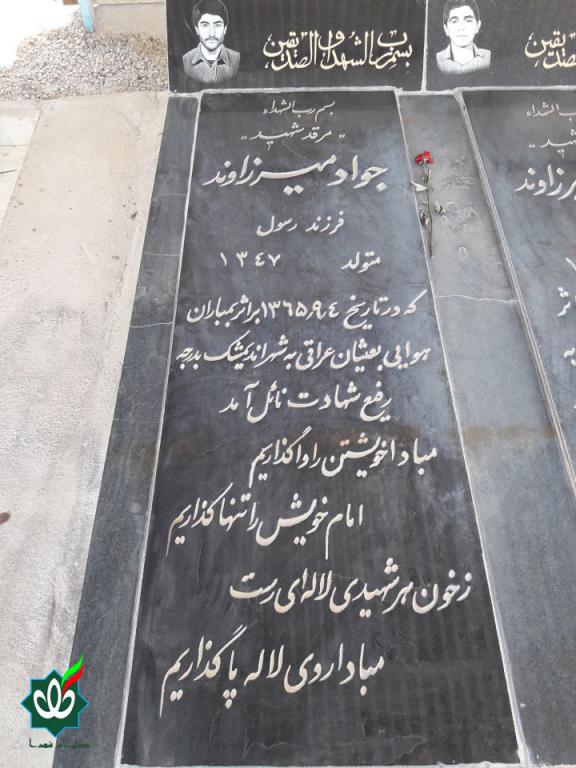 بسم رب الشهداء و الصدیقین
بسم رب الشهداء و الصدیقین
بسم رب الشهداء
"مرقد شهید"
جواد میرزاوند
فرزند رسول
متولد ۱۳۴۷
که در تاریخ ۱۳۶۵٫۹٫۴ بر اثر بمباران
هوایی بعثیان عراقی به شهر اندیمشک بدرجه
رفیع شهادت نائل آمد
مبادا خویشتن را واگذاریم
امام خویش را تنها گذاریم
ز خون هر شهیدی لاله‌ای رست
مبادا روی لاله پا گذاریم
رب الشهداء
شهید
یرزاوند